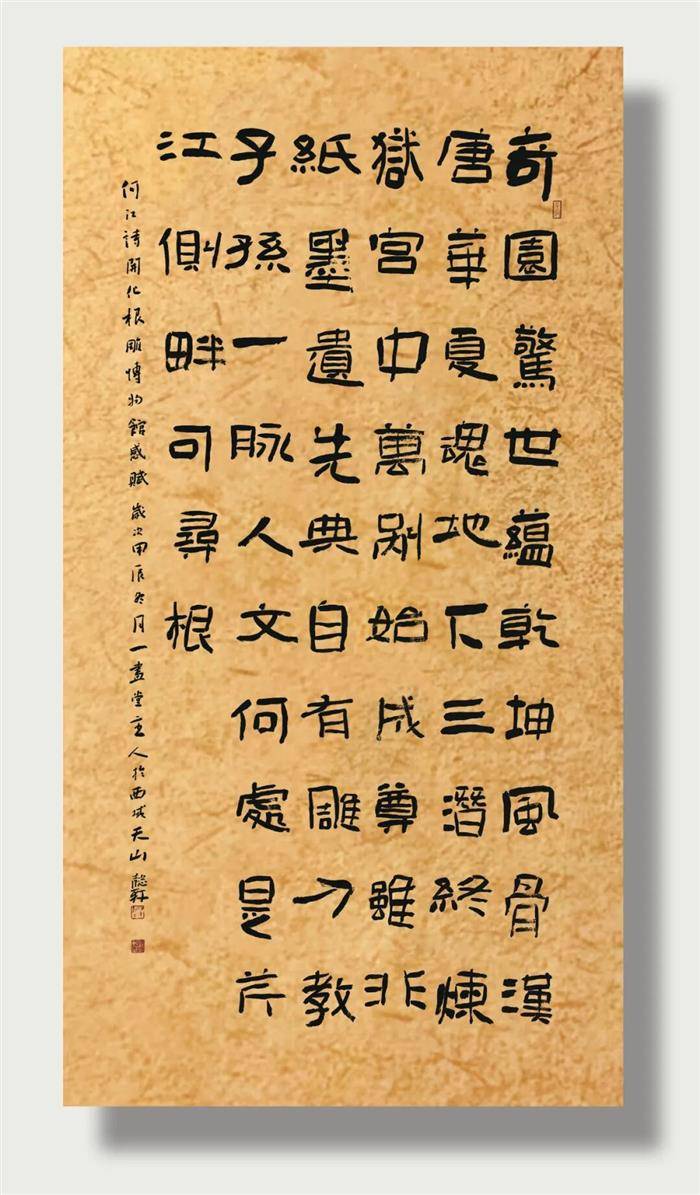 奇園驚世蘊乾坤風骨漢
唐華夏魂地下三潛終煉
獄宮中萬剐始成尊雖非
紙墨遺先典自有雕刀教
子孫一脉人文何處是芹
江側畔可尋根
何江詩開化根雕博物館感賦 歲次甲辰冬月一畫堂主人於西域天山